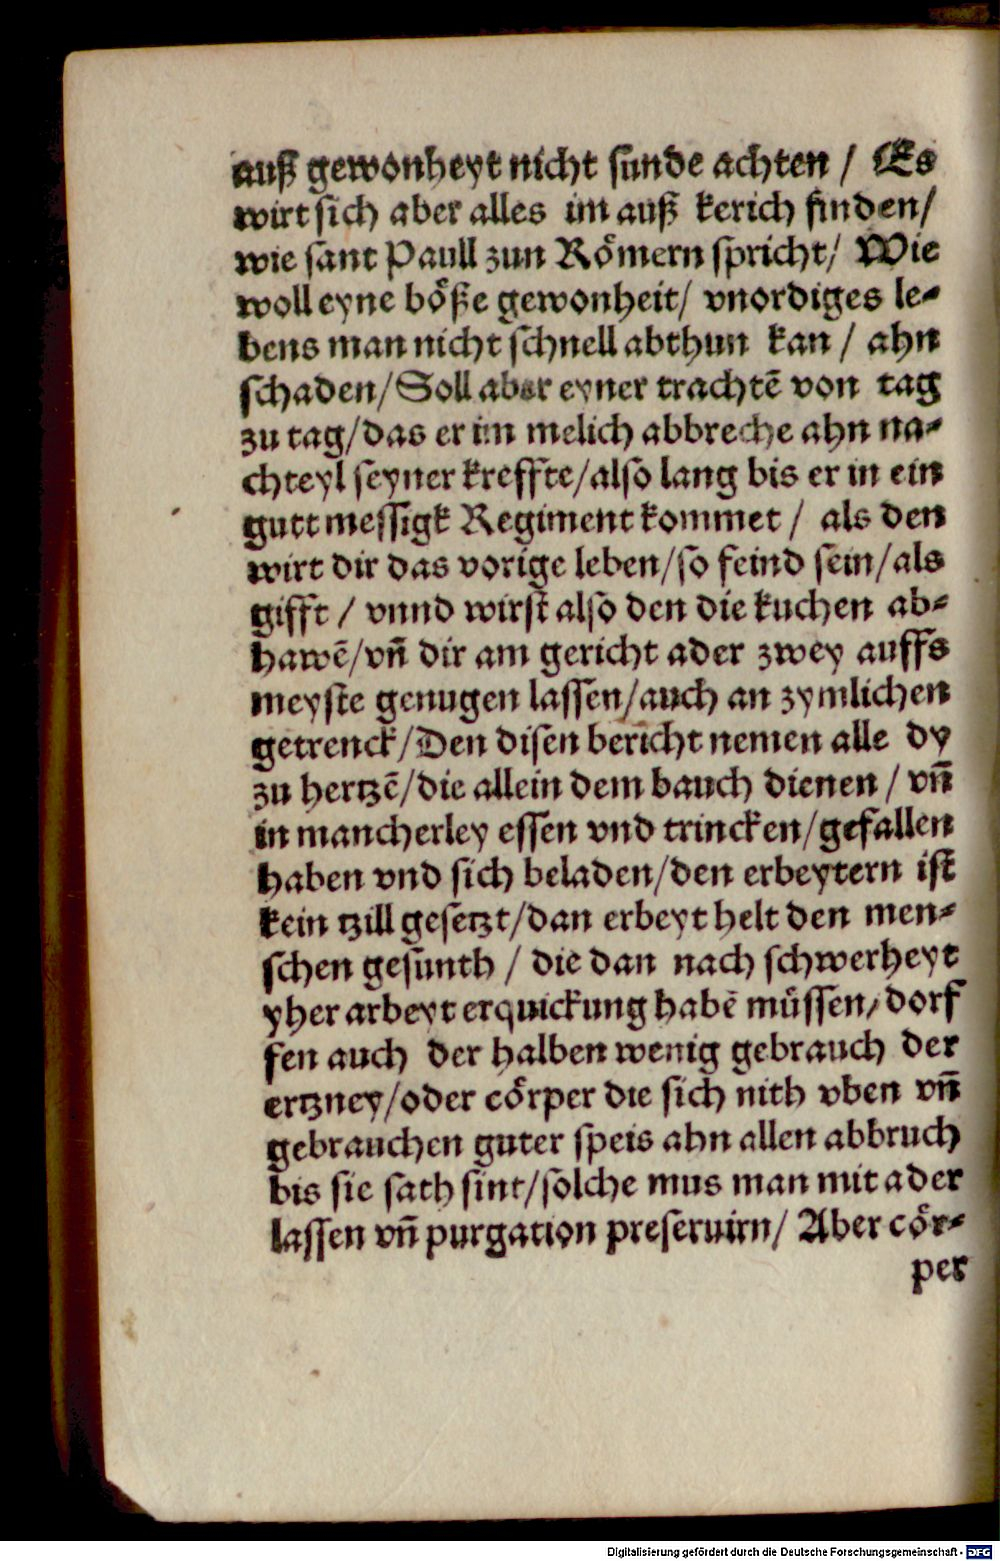 auß gewonheyt nicht sunde achten / Es
wirt sich aber alles im auß kerich finden/
wie sant Paull zun Rőmern spricht/ Wie
woll eyne bőße gewonheit/ vnordiges le-
bens man nicht schnell abthun kan / ahn
schaden/Soll aber eyner trachtē von tag
zu tag/das er im melich abbreche ahn na-
chteyl seyner kreffte/also lang bis er in ein
gutt messigk Regiment kommet / als den
wirt dir das vorige leben/so feind sein/als
gifft / vnnd wirst also den die kuchen ab-
hawē/vn̄ dir am gericht ader zwey auffs
meyste genugen lassen/auch an zymlichen
getrenck/Den disen bericht nemen alle dy
zu hertzē/die allein dem bauch dienen / vn̄
in mancherley essen vnd trincken/gefallen
haben vnd sich beladen/den erbeytern ist
kein tzill gesetzt/dan erbeyt helt den men-
schen gesunth / die dan nach schwerheyt
yher arbeyt erquickung habē müssen/dorf
fen auch der halben wenig gebrauch der
ertzney/oder cőrper die sich nith vben vn̄
gebrauchen guter speis ahn allen abbruch
bis sie sath sint/solche mus man mit ader
lassen vn̄ purgation preseruirn/ Aber cőr-
per
Digitalisierung gefördert durch die Deutsche Forschungsgemeinschaft - DFG